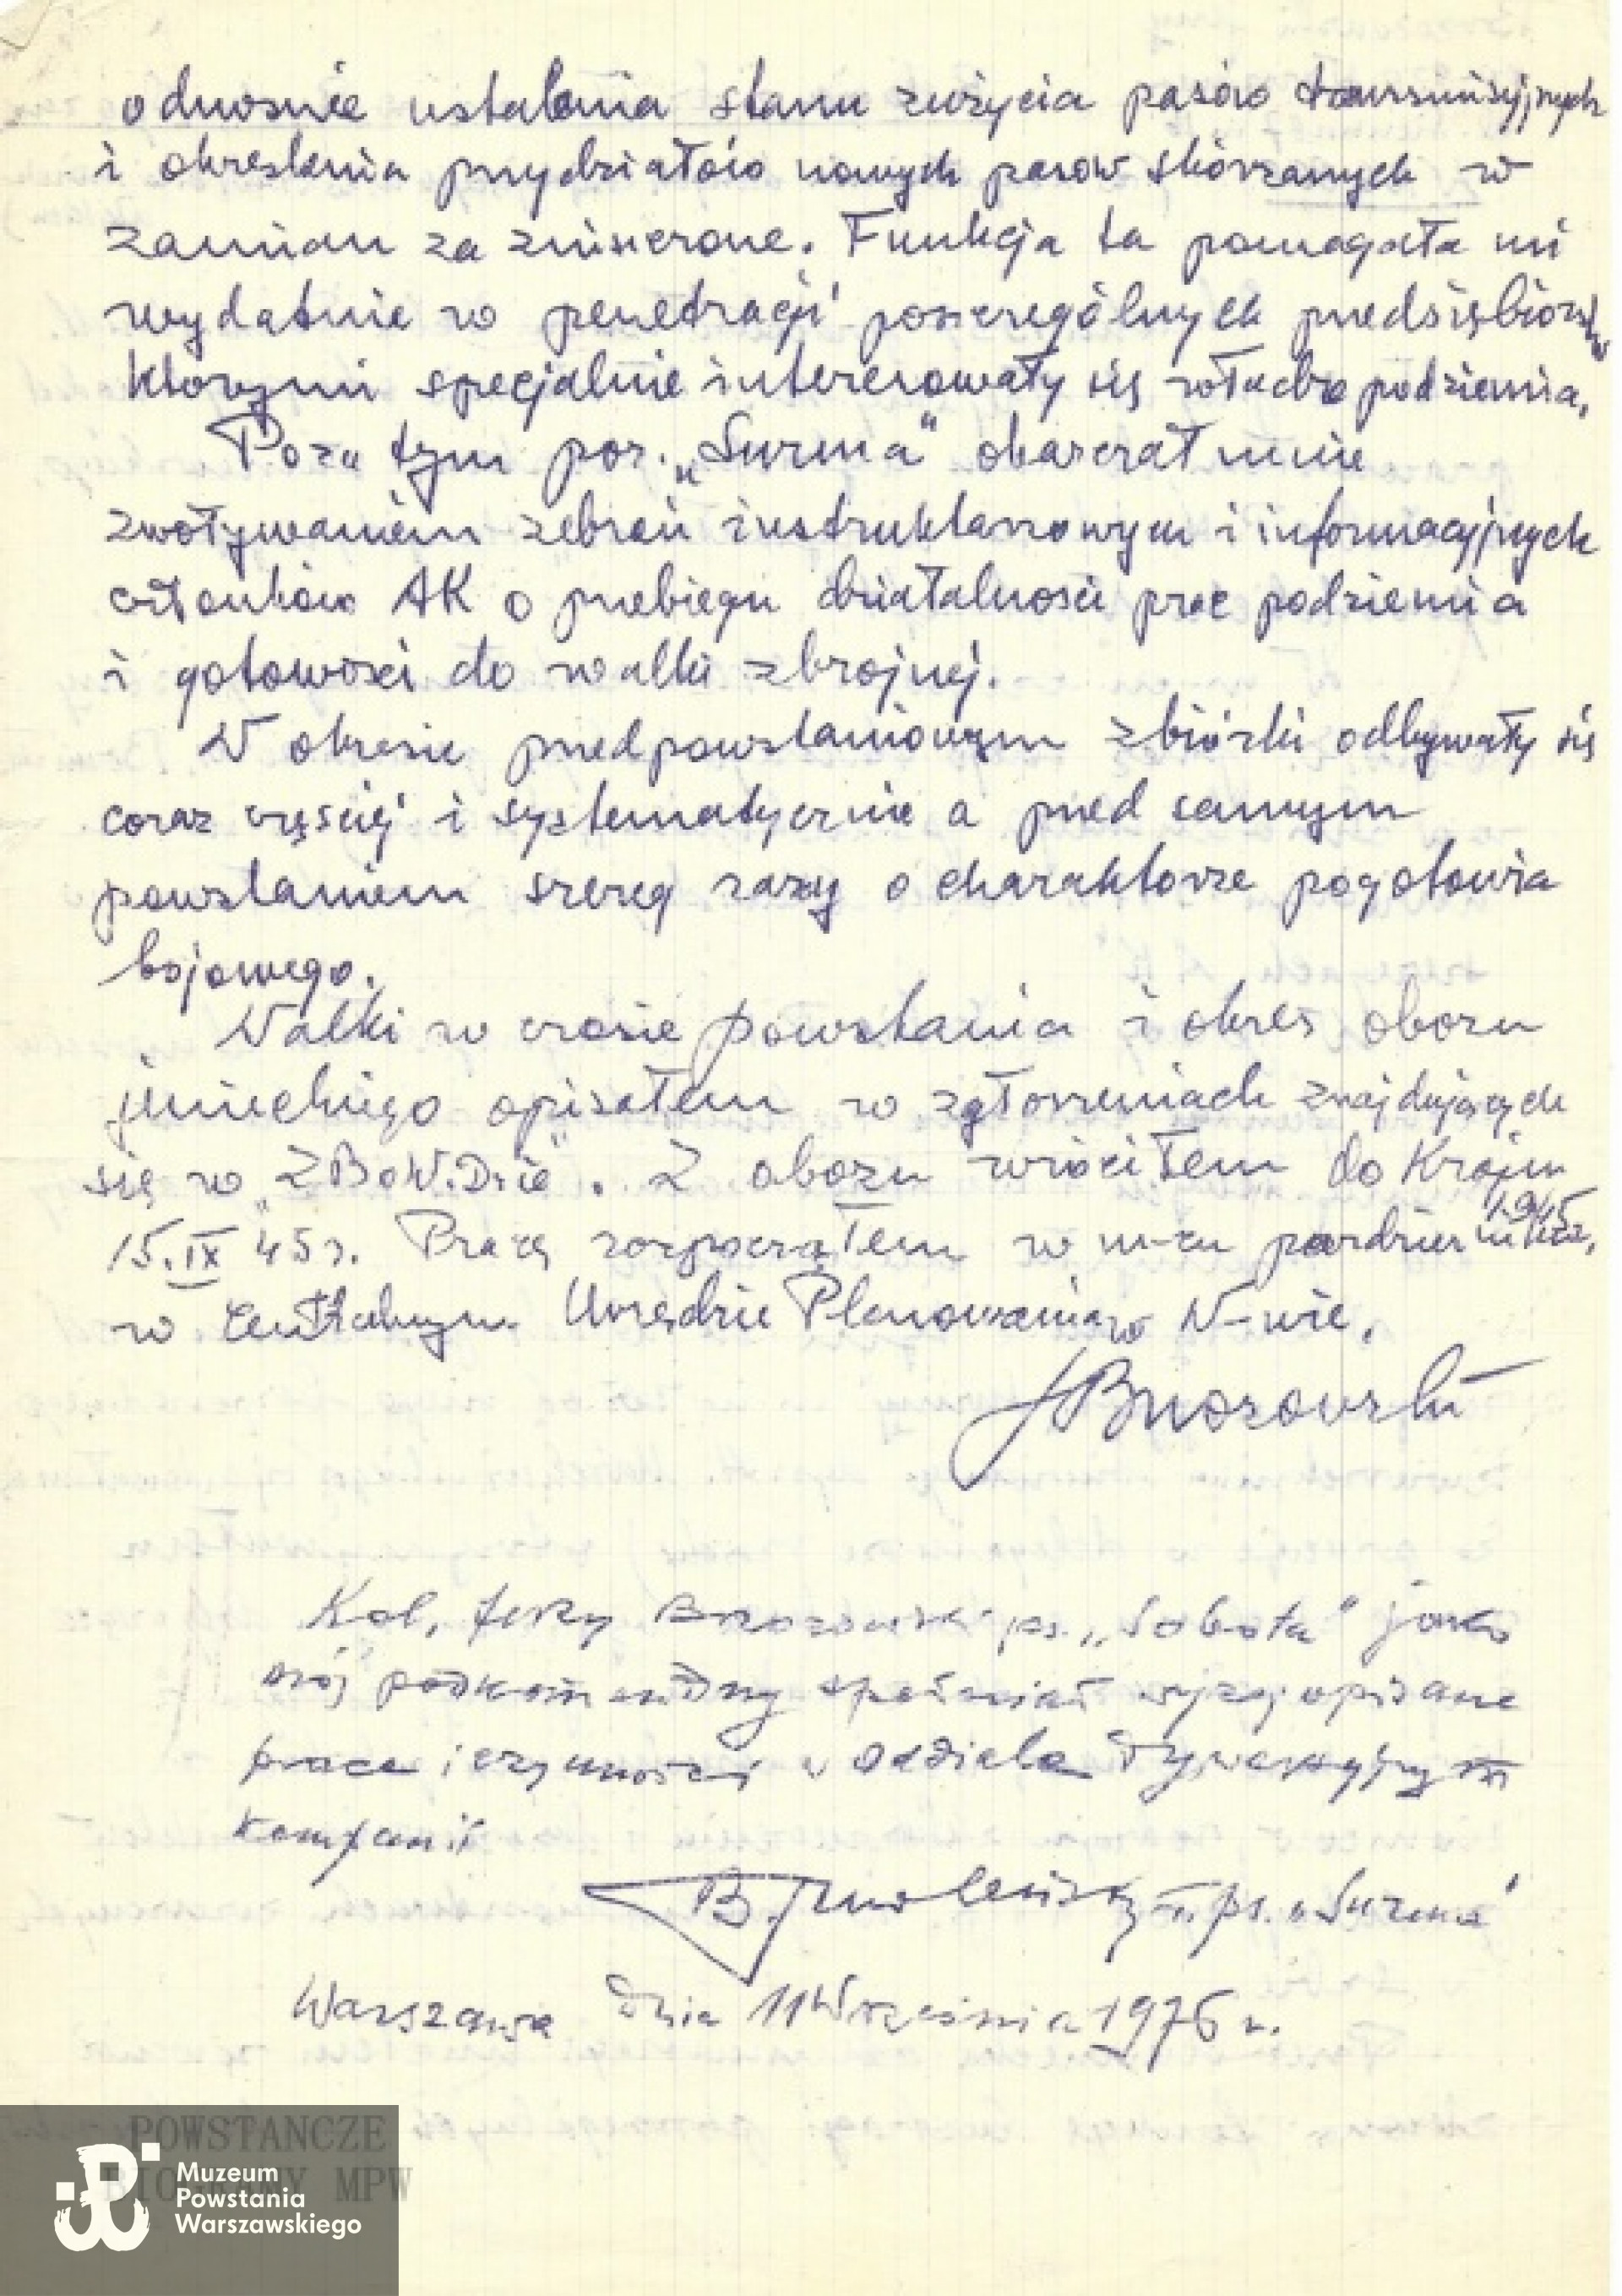 odnośnie ustalenia stanu zużycia pasów transmisyjnych
i określenia przydziałów nowych pasów skórzanych w
zamian za zniszczone. Funkcja ta pomagała mi
wydatnie w penetracji poszczególnych przedsiębiorstw
którymi specjalnie interesowały się władze podziemia.
Poza tym por. „Surma" obarczał mnie
zwoływaniem zebrań instruktarzowym i informacyjnych
członków AK o przebiegu działalności prac podziemia
i gotowości do walki zbrojnej.
W okresie przedpowstaniowym zbiórki odbywały się
coraz częściej i systematycznie a przed samym
powstaniem szereg razy o charakterze pogotowia
bojowego.
Walki w czasie powstania i okres obozu
jenieckiego opisałem w zgłoszeniach znajdujących
się w „ZBoW.Dzie". Z obozu wróciłem do Kraju
15.IX 45 r. Pracę rozpocząłem w m-cu październiku 1945
w Centralnym Urzędzie Planowania w W-wie.
JBrzozowski
Kol. Jerzy Brzozowski ps. „Sobota" jako
mój podkomendny spełniał wyżej opisane
prace i czynności w oddziale dywersyjnym
kompanii
B. Smoleński ps. „Surma"
Warszawa dnia 11 Września 1976 r.
POWSTAŃCZE
BIOGRAMY MPW
Muzeum
Powstania
Warszawskiego